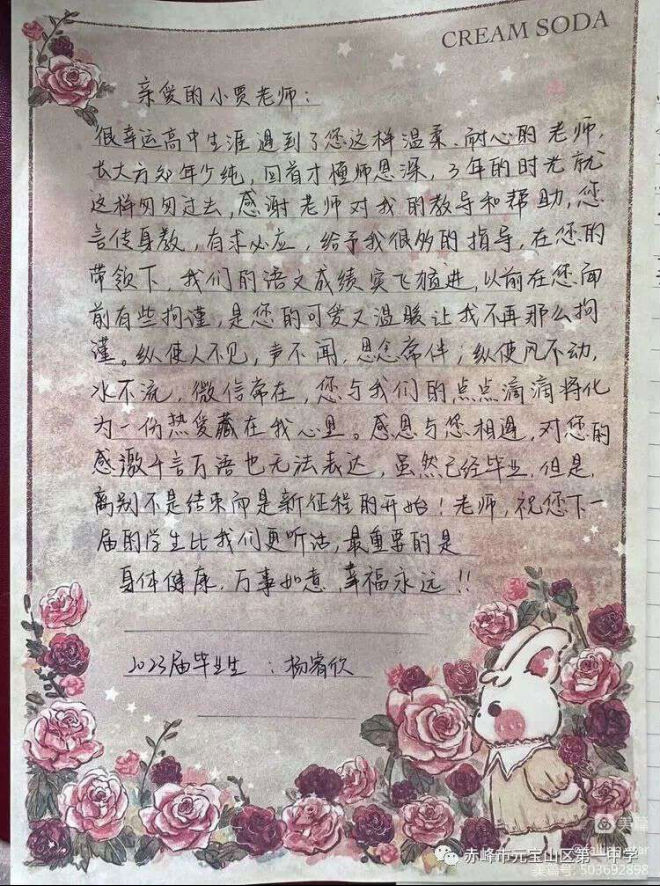 CREAM SODA
亲爱的小贾老师：
很幸运高中生涯遇到了您这样温柔、耐心的老师，
长大方知年少纯，回首才懂师恩深，3年的时光就
这样匆匆过去，感谢老师对我的教导和帮助，您
言传身教，有求必应，给予我很多的指导，在您的
带领下，我们的语文成绩突飞猛进，以前在您面
前有些拘谨，是您的可爱又温暖让我不再那么拘
谨。纵使人不见，声不闻，思念常伴；纵使风不动，
水不流，微信常在，您与我们的点点滴滴将化
为一份热爱藏在我心里。感恩与您相遇，对您的
感激千言万语也无法表达，虽然已经毕业，但是，
离别不是结束而是新征程的开始！老师，祝您下一
届的学生比我们更听话，最重要的是
身体健康，万事如意，幸福永远！！
2023届毕业生：杨睿欣
美篇
赤峰市元宝山区第一中学
美篇号：503692898